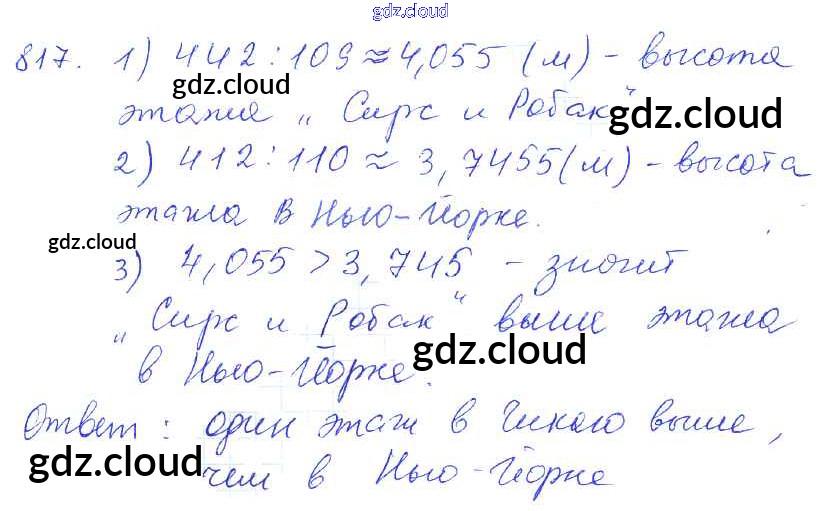 gdz.cloud
817. 1) 442 : 109 ≈ 4,055 (м) - высота
gdz.cloud
этажа „Сирс и Робак“
gdz.cloud
2) 412 : 110 ≈ 3,7455 (м) - высота
этажа в Нью-Йорке.
gdz.cloud
3) 4,055 > 3,745 - значит
„Сирс и Робак“ выше этажа
в Нью-Йорке.
gdz.cloud
Ответ: один этаж в Чикаго выше,
gdz.cloud
чем в Нью-Йорке